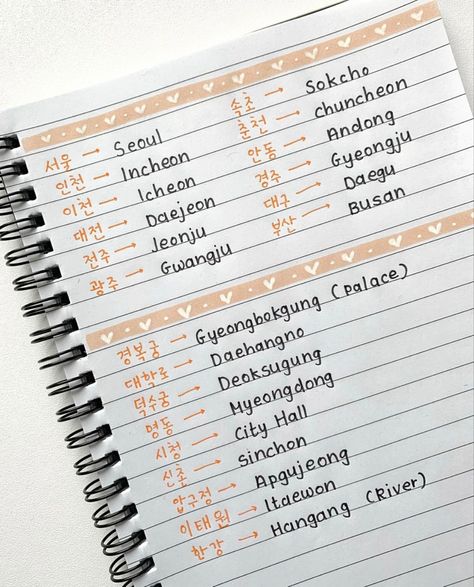 서울 → Seoul
인천 → Incheon
이천 → Icheon
대전 → Daejeon
전주 → Jeonju
광주 → Gwangju
속초 → Sokcho
춘천 → chuncheon
안동 → Andong
경주 → Gyeongju
대구 → Daegu
부산 → Busan
경복궁 → Gyeongbokgung (palace)
대학로 → Daehangno
덕수궁 → Deoksugung
명동 → Myeongdong
시청 → City Hall
신촌 → Sinchon
압구정 → Apgujeong
이태원 → Itaewon
한강 → Hangang (River)